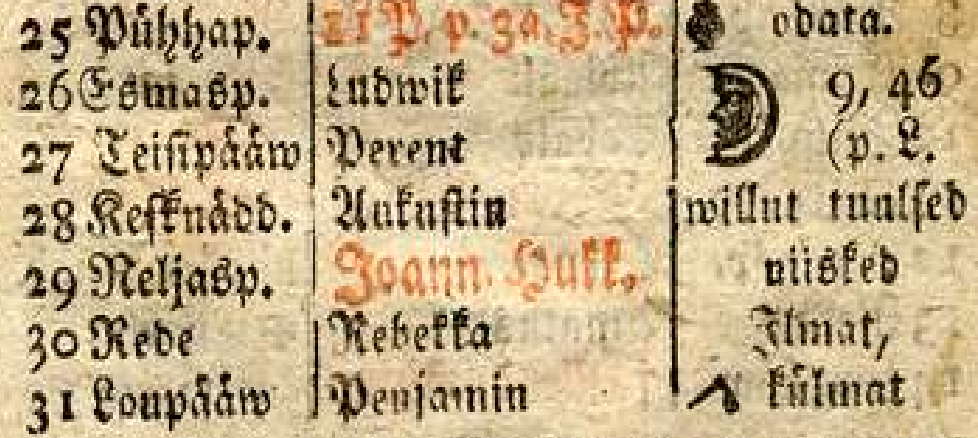 25 Pühhap. 11 P. p. 3a. J. P. odata.
26 Esmasp. Ludwik 9, 46
27 Teisipääw Perent (p. L.
28 Kesknädd. Aukustin willut tuulsed
29 Neljasp. Joann. Hukk. niisked
30 Rede Rebekka Ilmat,
31 Loupääw Penjamin külmat